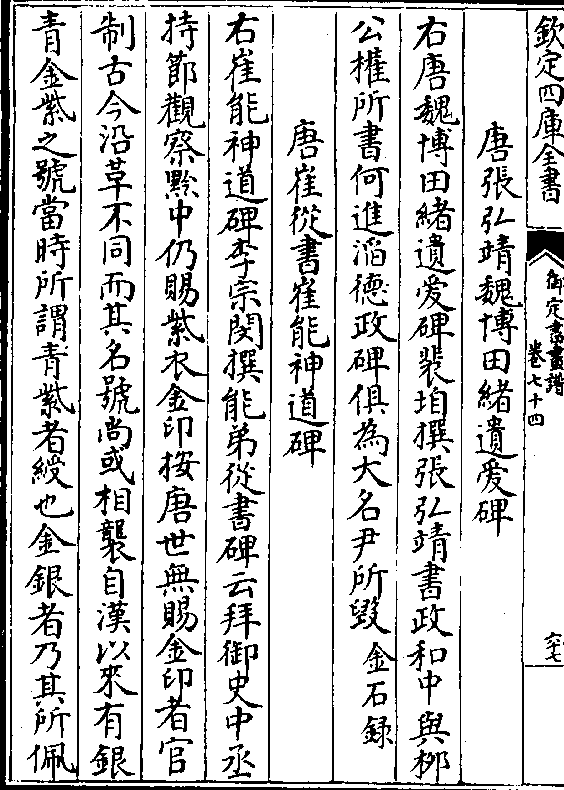 欽定四庫全書
御定書畫譜
卷七十四
六十七
唐張弘靖魏博田緒遺愛碑
右唐魏博田緒遺愛碑裴垍撰張弘靖書政和中與栁
公權所書何進滔德政碑俱為大名尹所毀 金石録
唐崔從書崔能神道碑
右崔能神道碑李宗閔撰能弟從書碑云拜御史中丞
持節觀察黔中仍賜紫衣金印按唐世無賜金印者官
制古今沿革不同而其名號尚或相襲自漢以來有銀
青金紫之號當時所謂青紫者綬也金銀者乃其所佩